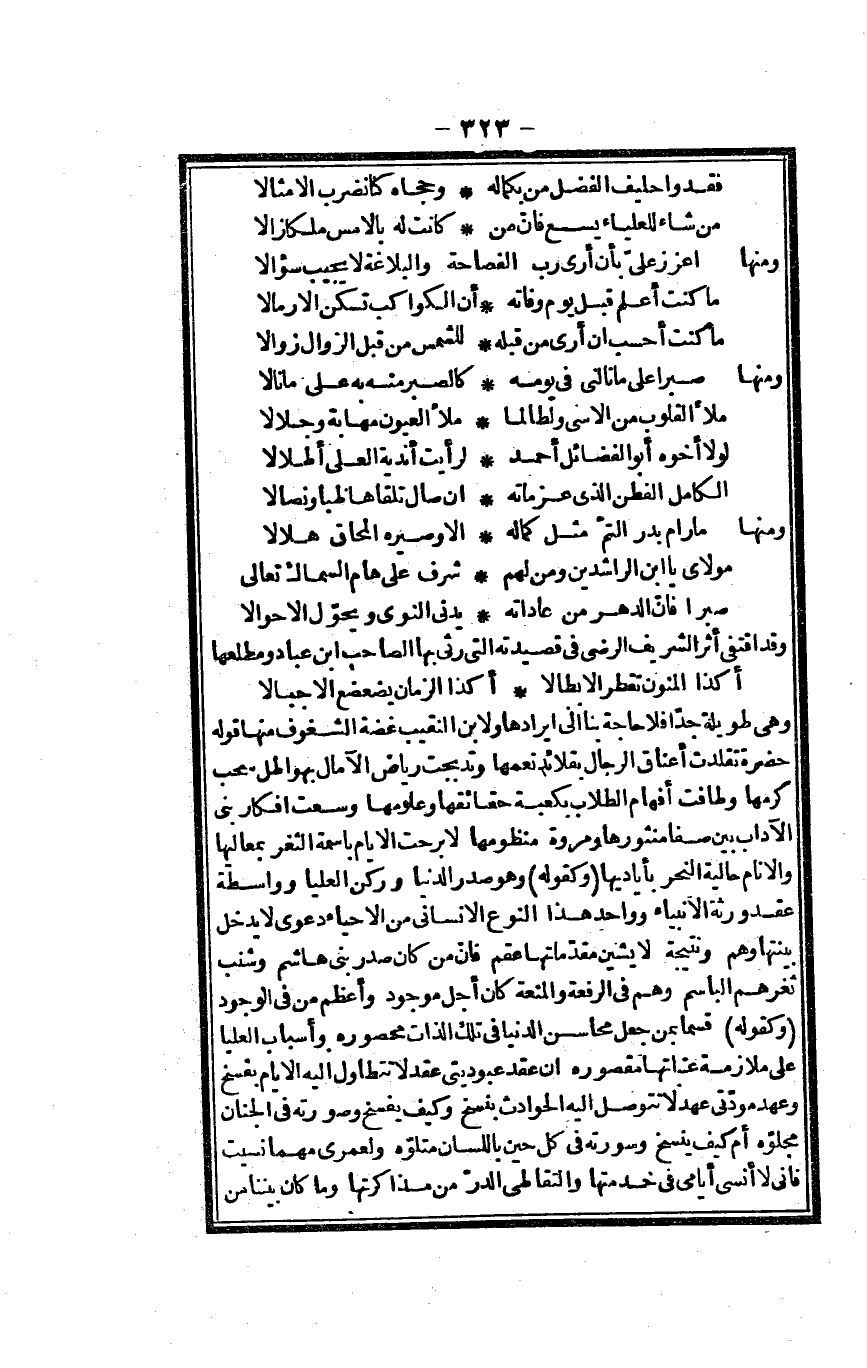 - ٣٢٣ -
فقدوا حليف الفضل من بكماله * وحجاه كنا نضرب الامثالا
من شاء للعلياء يسع فانّ من * كانت له بالامس ملكا زالا
ومنها اعزز علىّ بأن أرى رب الفصاحة والبلاغة لا يجيب سؤالا
ما كنت أعلم قبل يوم وفاته * أن الكواكب تسكن الارمالا
ما كنت أحسب ان أرى من قبله * للشمس من قبل الزوال زوالا
ومنها صبرا على ما نالنى فى يومه * كالصبر منه به على ما نالا
ملأ القلوب من الاسى ولطالما * ملأ العيون مهابة وجلالا
لولا أخوه أبو الفضائل أحمد * لرأيت أندية العلى أطلالا
الكامل الفطن الذى عزماته * ان صال تلقاها ظبا ونصالا
ومنها ما رام بدر التمّ مثل كماله * الا وصيره المحاق هلالا
مولاى يا ابن الراشدين ومن لهم * شرف على هام السماك تعالى
صبرا فانّ الدهر من عاداته * يدنى النوى ويحوّل الاحوالا
وقد اقتفى أثر الشريف الرضى فى قصيدته التى رثى بها الصاحب ابن عباد ومطلعها
أكذا المنون تقطر الابطالا * أكذا الزمان يضعضع الاجبالا
وهى طويلة جدّا فلا حاجة بنا الى ايرادها ولابن النقيب غضة الشغوف منها قوله
حضرة تقلدت أعناق الرجال بقلائد نعمها وتدبجت رياض الآمال بهواطل سحب
كرمها وطافت أفهام الطلاب بكعبة حقائقها وعلومها وسعت افكار بنى
الآداب بين صفا منثورها ومروة منظومها لا برحت الايام باسمة الثغر بمعاليها
والانام حالية النحر بأياديها (وكقوله) وهو صدر الدنيا وركن العليا وواسطة
عقد ورثة الأنبياء وواحد هذا النوع الانسانى من الاحياء دعوى لا يدخل
بينتها وهم ونتيجة لا يشين مقدّماتها عقم فانّ من كان صدر بنى هاشم وشنب
ثغرهم الباسم وهم فى الرفعة والمنعة كان أجل موجود وأعظم من فى الوجود
(وكقوله) قسما بمن جعل محاسن الدنيا فى تلك الذات محصوره وأسباب العليا
على ملازمة عتباتها مقصوره ان عقد عبوديتى عقد لا تتطاول اليه الايام بفسخ
وعهد مودّتى عهد لا تتوصل اليه الحوادث بنسخ وكيف يفسخ وصورته فى الجنان
مجلوّه أم كيف ينسخ وسورته فى كل حين باللسان متلوّه ولعمرى مهما نسيت
فانى لا أنسى أيامى فى خدمتها والتقاطى الدرّ من مذاكرتها وما كان بيننا من